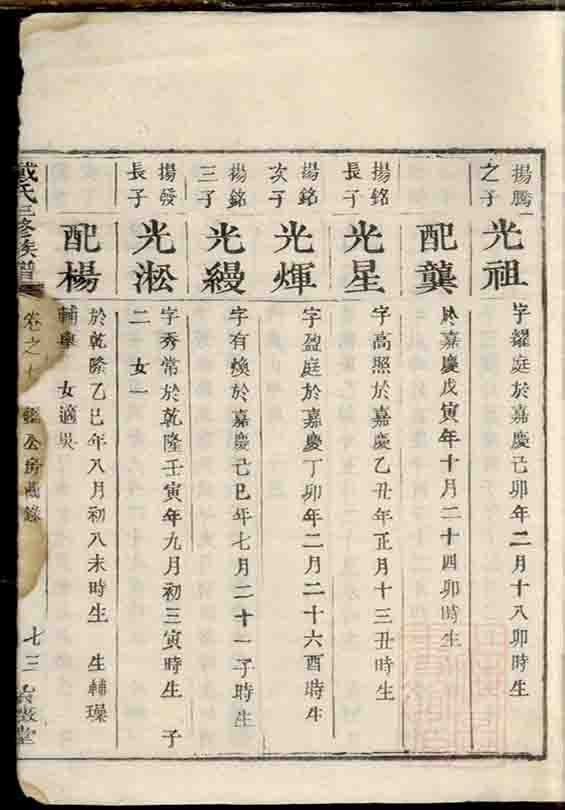 揚騰之子
光祖
字耀庭於嘉慶己卯年二月十八卯時生
配龔
於嘉慶戊寅年十月二十四卯時生
揚銘長子
光星
字高照於嘉慶乙丑年正月十三丑時生
揚銘次子
光煇
字盈庭於嘉慶丁卯年二月二十六酉時生
揚銘三子
光縵
字有煥於嘉慶己巳年七月二十一子時生
揚發長子
光淞
字秀常於乾隆壬寅年九月初三寅時生 子
二 女一
配楊
於乾隆乙巳年八月初八未時生 生輔璪
輔 女適吳
戴氏三修族譜
卷之
公房 錄
七三
堂